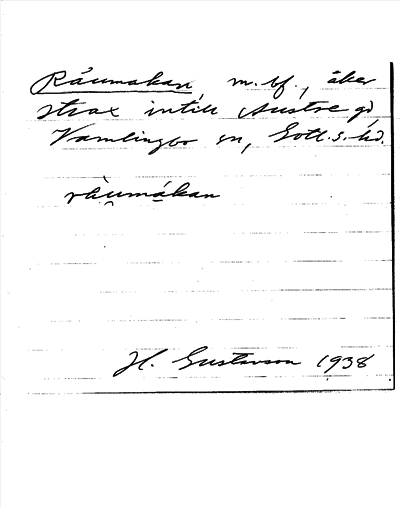 Råumakan, m. bf., åker
strax intill Austre gd
Vamlingbo sn, Gotl. s. hd.
rhàumákan
H. Gustavson 1938